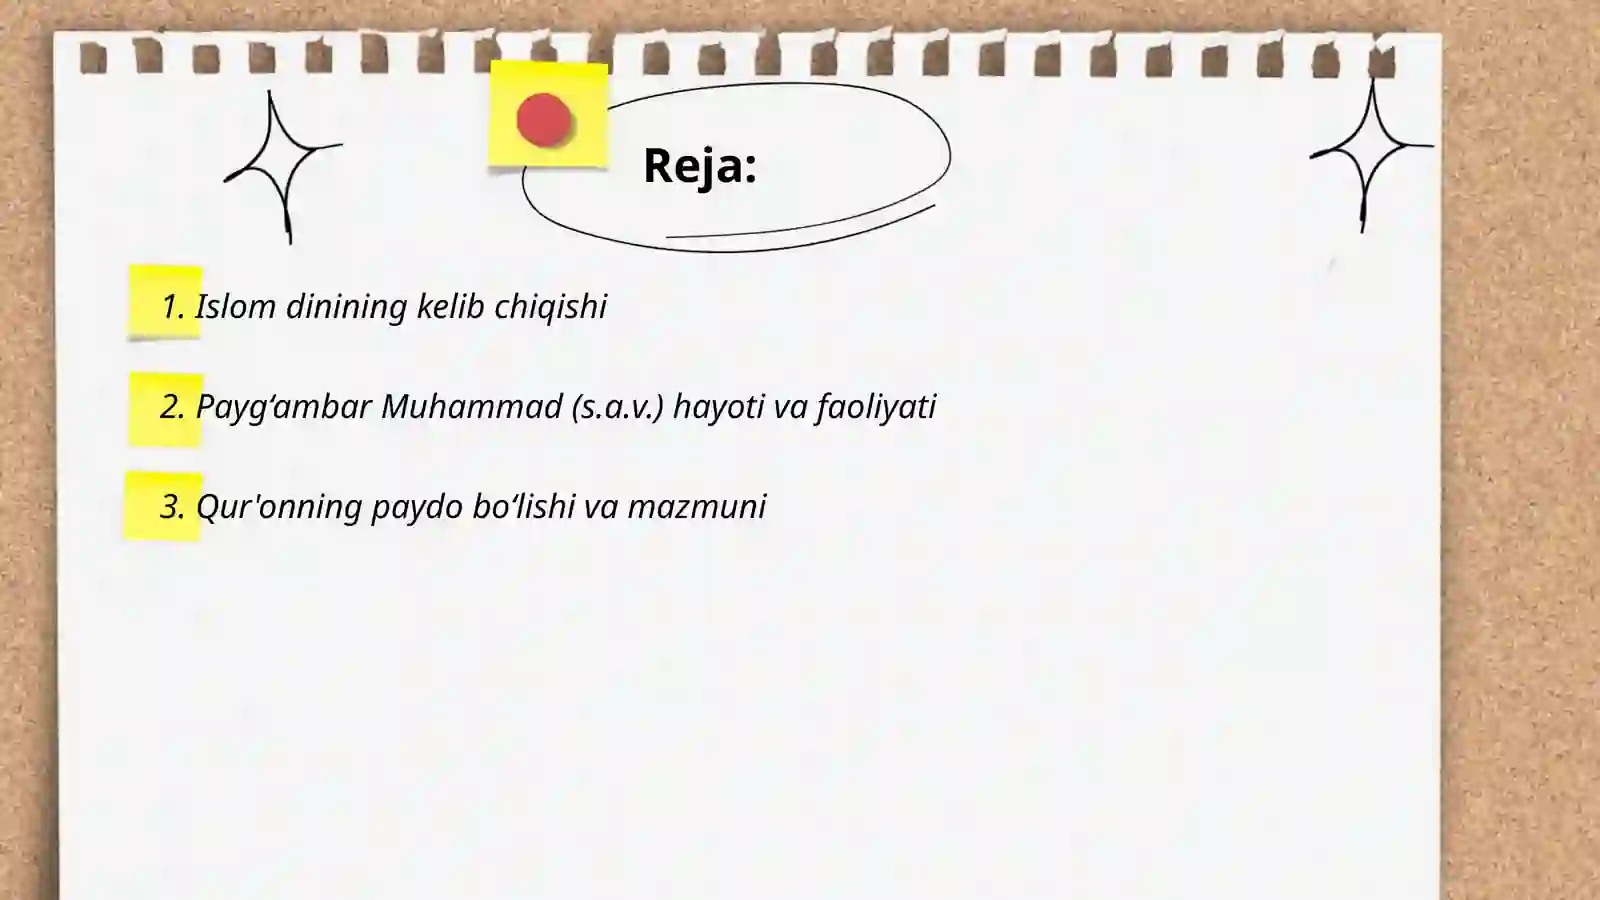 Reja:
1. Islom dinining kelib chiqishi
2. Payg‘ambar Muhammad (s.a.v.) hayoti va faoliyati
3. Qur'onning paydo bo‘lishi va mazmuni